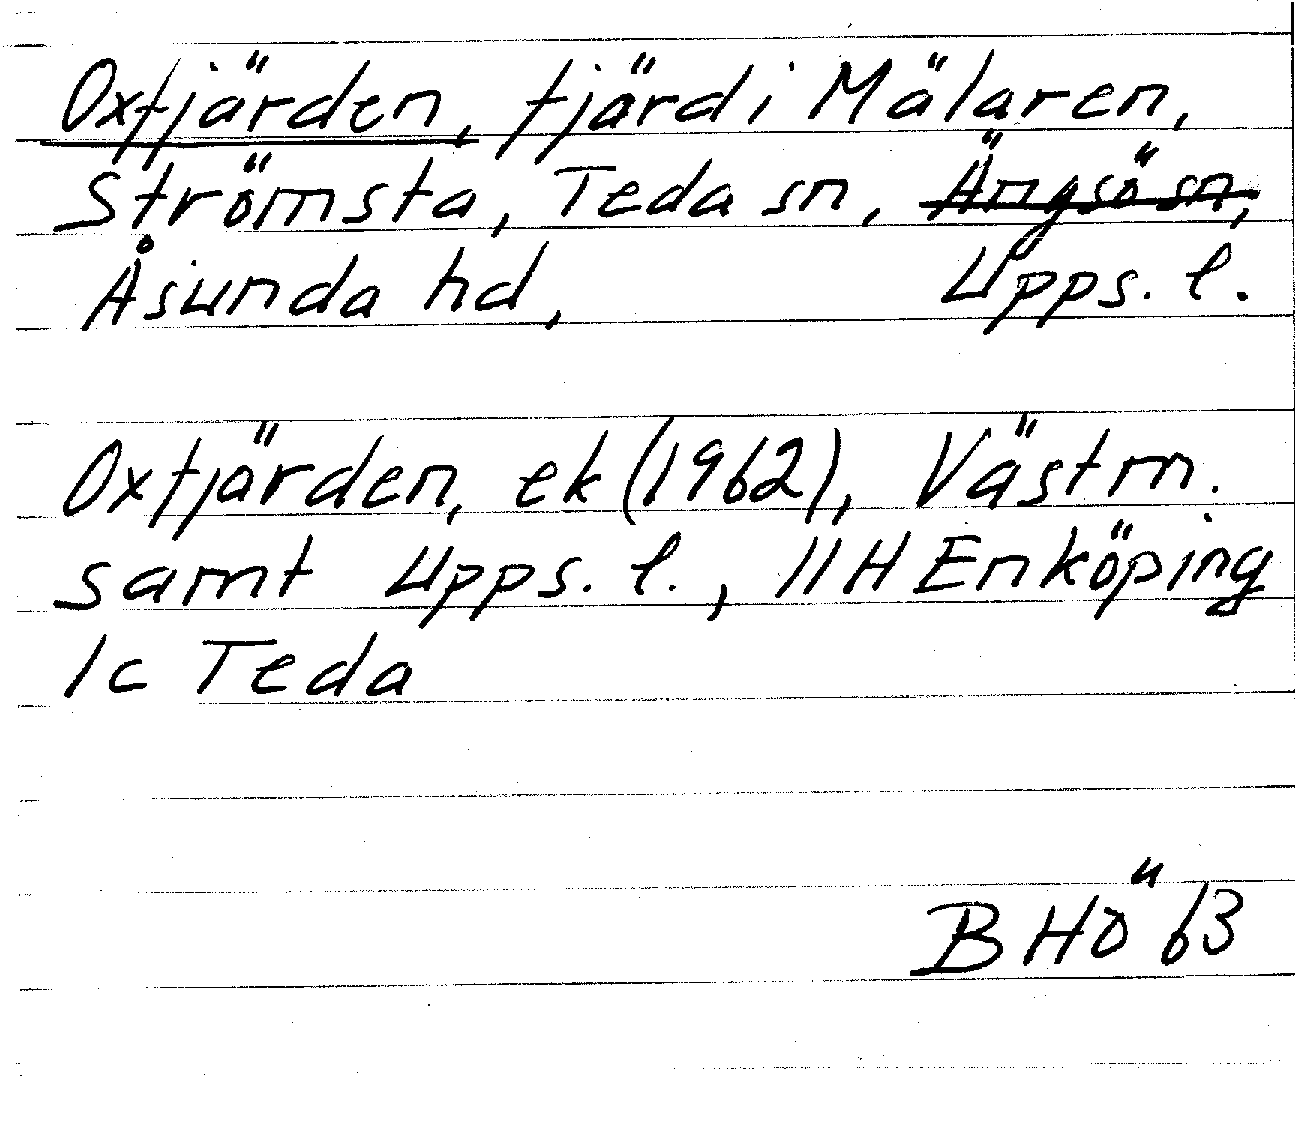 Oxfjärden, fjärd i Mälaren,
Strömsta, Teda sn, Ängsö sn,
Åsunda hd, Upps. l.
Oxfjärden, ek (1962), Västm.
samt Upps. l., 11H Enköping
1c Teda
B Hö 63